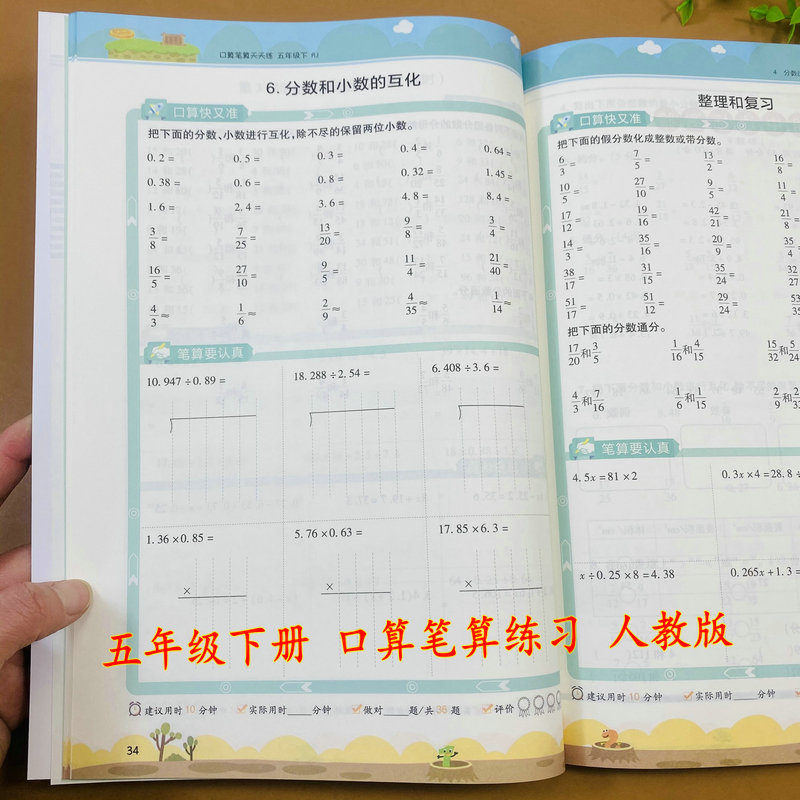 口算笔算天天练 五年级下 RJ
6. 分数和小数的互化
口算快又准
把下面的分数、小数进行互化,除不尽的保留两位小数。
0.2= 0.5= 0.3= 0.4= 0.64=
0.38= 0.6= 0.8= 0.32= 1.45=
1.6= 2.4= 3.6= 4.8= 8.4=
3/8= 7/25= 13/20= 9/8= 3/4=
16/5= 27/10= 9/5= 11/4= 21/40=
4/3≈ 1/6≈ 2/9≈ 4/35≈ 1/14≈
笔算要认真
10.947÷0.89= 18.288÷2.54= 6.408÷3.6=
1.36×0.85= 5.76×0.63= 17.85×6.3=
× × ×
建议用时10分钟 实际用时____分钟 做对____题/共36题 评价
34
4 分数
整理和复习
口算快又准
把下面的假分数化成整数或带分数。
6/3= 7/5= 13/2= 16/8=
10/5= 27/10= 9/5= 11/4=
17/12= 19/16= 42/21= 21/8=
14/3= 35/16= 20/9= 35/4=
38/17= 31/15= 35/24= 32/27
51/17= 51/12= 29/24= 53/35
把下面的分数通分。
17/20和3/5 1/16和4/15 15/32和5/24
4/3和7/16 1/6和1/15 2/9和2/3
笔算要认真
4.5x=81×2 0.3x×4=28.8÷
x÷0.25×8=4.38 0.265x+1.3=
建议用时10分钟 实际用时____分钟
五年级下册 口算笔算练习 人教版